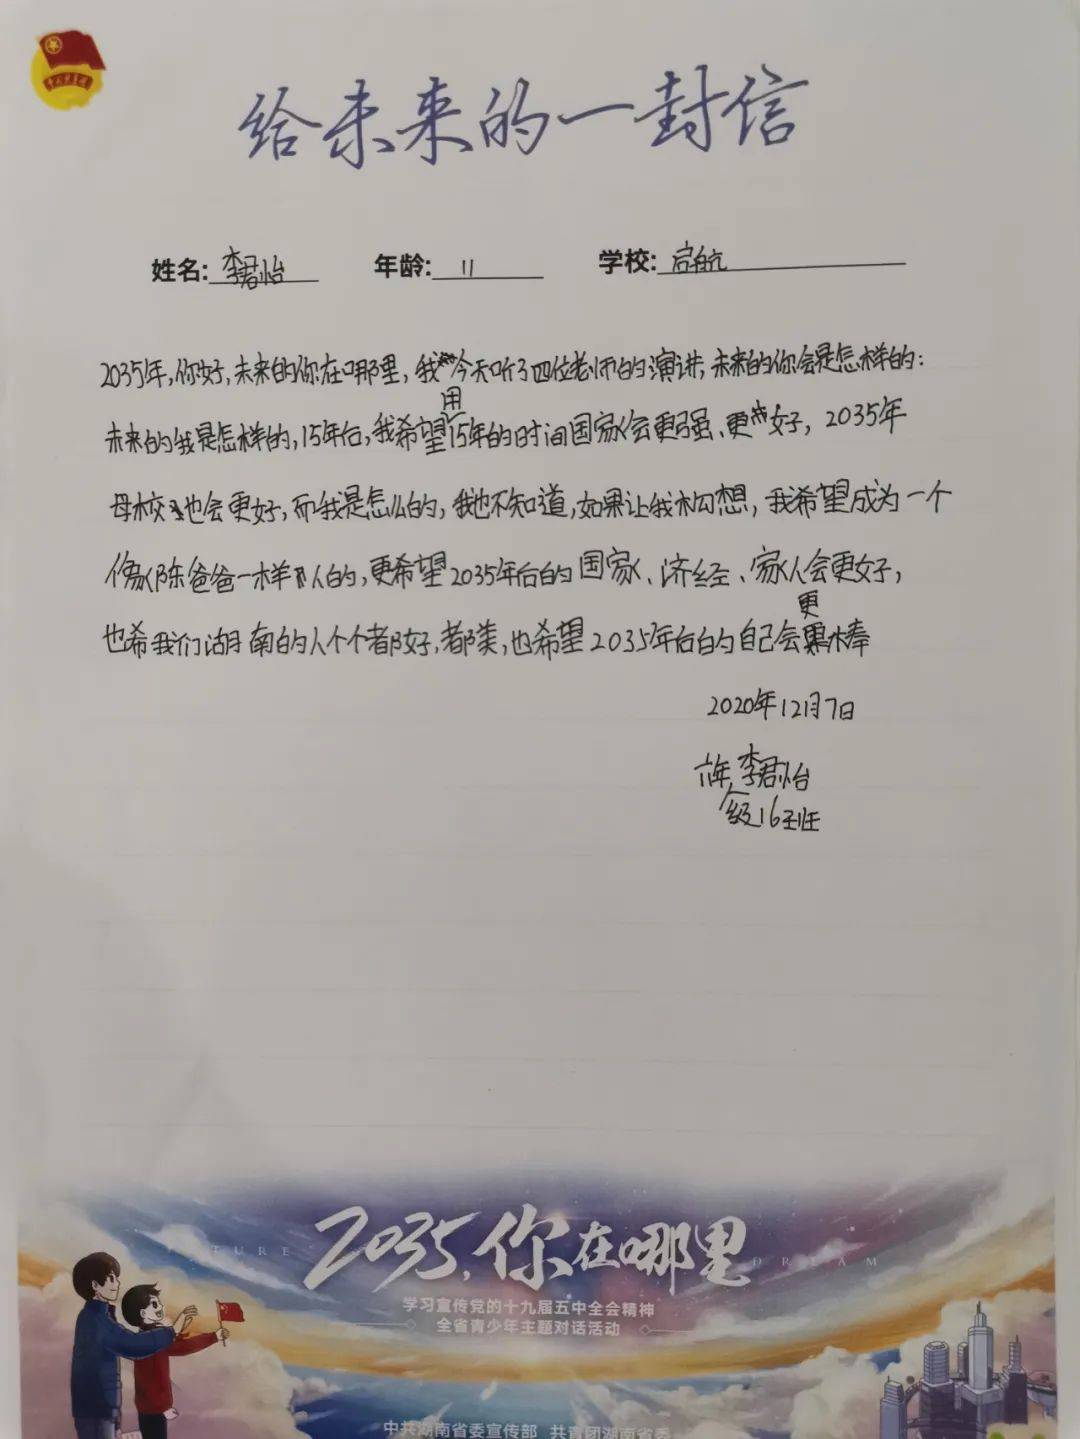 给未来的一封信
姓名: 李君怡 年龄: 11 学校: 启航
2035年,你好,未来的你在哪里,我今天听了四位老师的演讲,未来的你会是怎样的:
用
未来的我是怎样的,15年后,我希望15年的时间国家会更强、更好,2035年
母校也会更好,而我是怎么的,我也不知道,如果让我构想,我希望成为一个
像陈爸爸一样的人的,更希望2035年后的国家、济经、家人会更好,
更
也希我们湖南的人个个都好,都美,也希望2035年后的自己会棒
2020年12月7日
六年级 李君怡
16班
FUTURE DREAM
2035,你在哪里
学习宣传党的十九届五中全会精神
全省青少年主题对话活动
中共湖南省委宣传部 共青团湖南省委